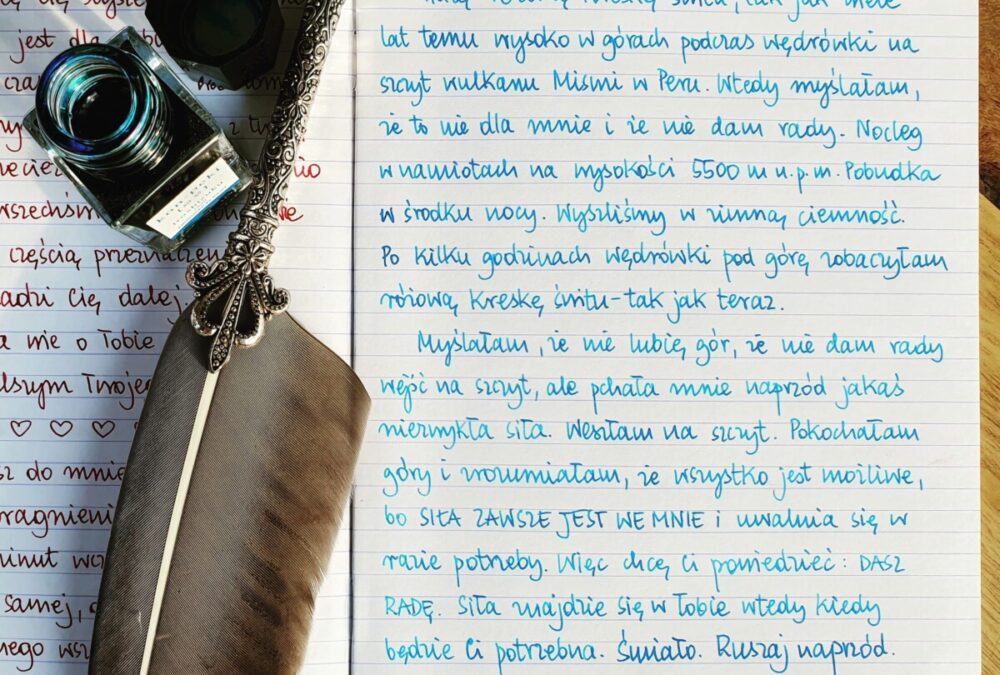 jest dla
częścią przeznaczen
adzi Cię dalej.
a nie o Tobie
lszym Twojej
sz do mnie
ragnieni
inut
samej,
nego
lat temu wysoko w górach podczas wędrówki na
szczyt wulkanu Mismi w Peru. Wtedy myślałam,
że to nie dla mnie i że nie dam rady. Nocleg
w namiotach na wysokości 5500 m n.p.m. Pobudka
w środku nocy. Wyszliśmy w zimną ciemność.
Po kilku godzinach wędrówki pod górę zobaczyłam
różową kreskę świtu - tak jak teraz.
Myślałam, że nie lubię gór, że nie dam rady
wejść na szczyt, ale pchała mnie naprzód jakaś
niezwykła siła. Weszłam na szczyt. Pokochałam
góry i zrozumiałam, że wszystko jest możliwe,
bo SIŁA ZAWSZE JEST WE MNIE i uwalnia się w
razie potrzeby. Więc chcę Ci powiedzieć: DASZ
RADĘ. Siła znajdzie się w Tobie wtedy kiedy
będzie Ci potrzebna. Śmiało. Ruszaj naprzód.